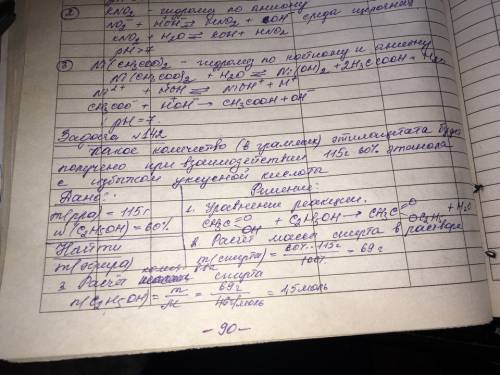 ② KNO₂ – гидролиз по аниону
NO₂⁻ + HOH ⇌ HNO₂ + OH⁻ среда щелочная
KNO₂ + H₂O ⇌ KOH + HNO₂
pH>7
③ Ni(CH₃COO)₂ – гидролиз по катиону и аниону
Ni(CH₃COO)₂ + H₂O ⇌ Ni(OH)₂ + 2H₃CCOOH
Ni²⁺ + HOH ⇌ NiOH⁺ + H⁺
CH₃COO⁻ + HOH → CH₃COOH + OH⁻
pH=7
Задача №142
Какое количество (в граммах) этилацетата будет
получено при взаимодействии 115г 60% этанола
с избытком уксусной кислоты
Дано: Решение:
m(р-ра) = 115г 1. Уравнение реакции.
w(C₂H₅OH) = 60% CH₃C=O OH + C₂H₅OH → CH₃C=O OC₂H₅ + H₂O
Найти 2. Расчёт массы спирта в растворе
m(эфира) m(спирта) = 60% · 115г / 100% = 69г
3. Расчёт спирта
n(C₂H₅OH) = m/M = 69г / = 1,5моль
– 90 –